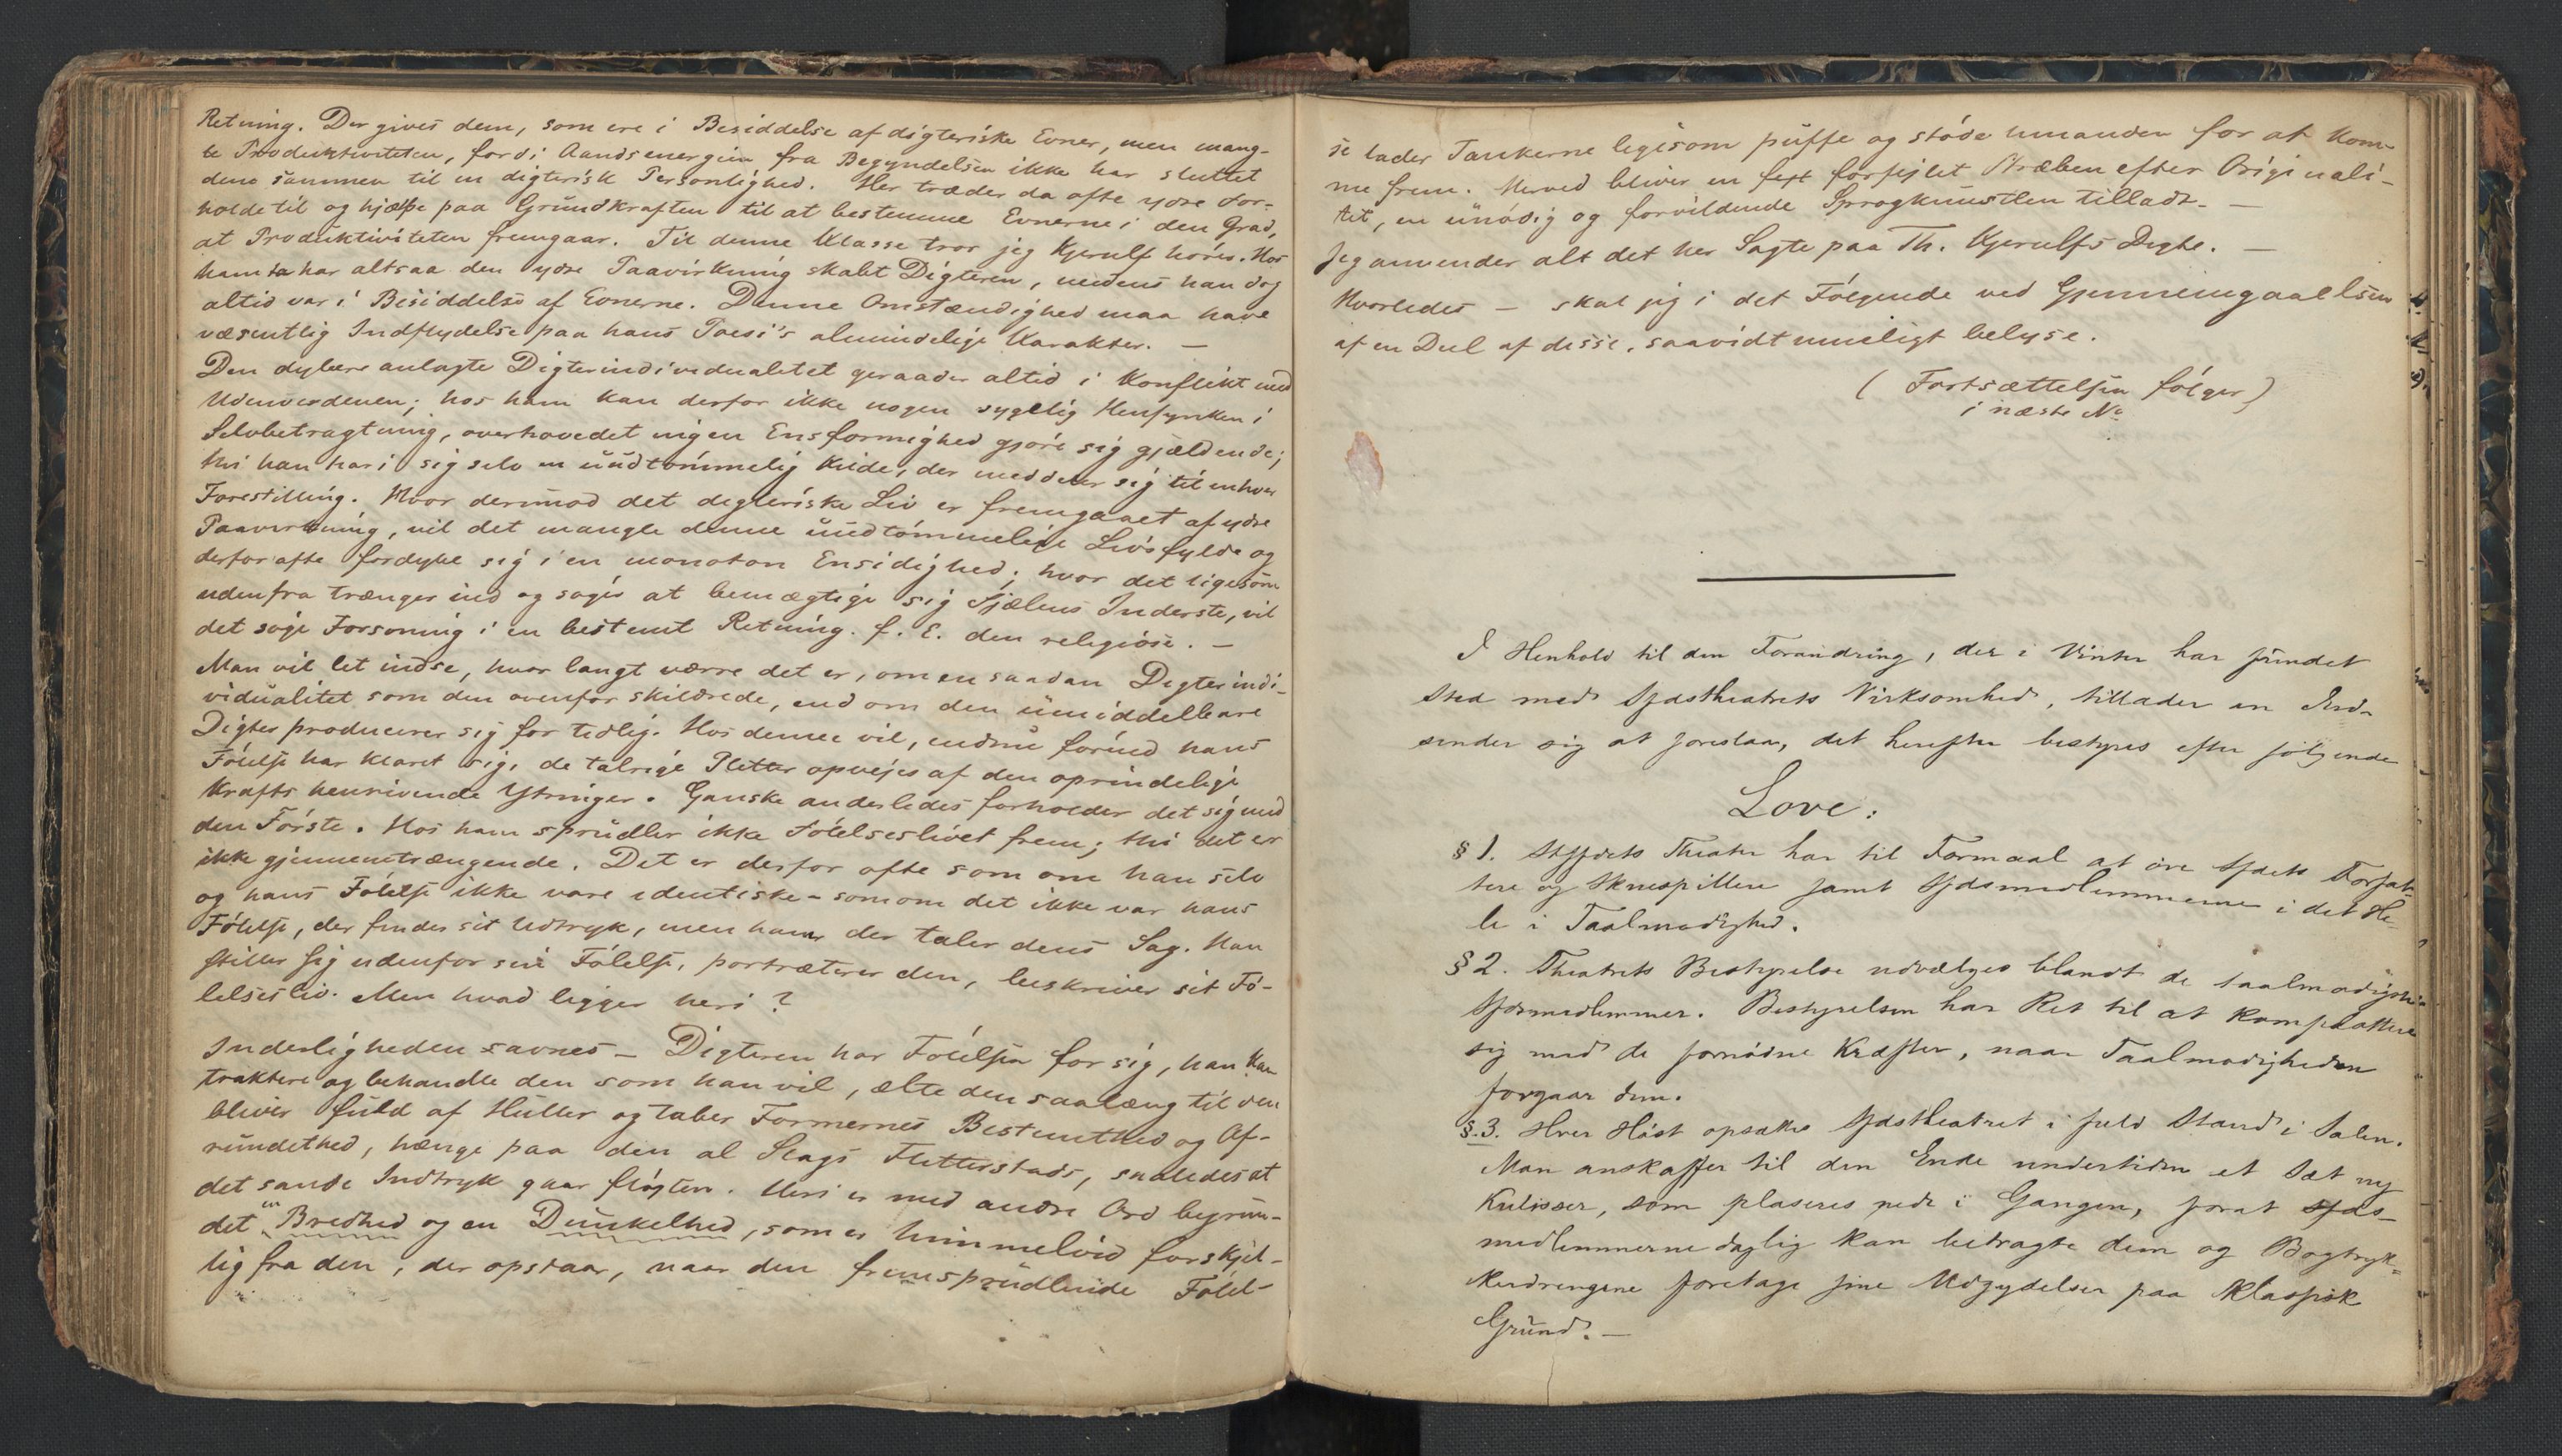 Retning. Der gives dem, som ere i Besiddelse af digteriske Evner, men mang-
le Produktiviteten, fordi Aandsenergien fra Begyndelsen ikke har sluttet
dem sammen til en digterisk Personlighed. Her træder da ofte ydre For-
holde til og hjælpe paa Grundkraften til at bestemme Evnerne i den Grad,
at Produktiviteten fremgaar. Til denne Klasse tror jeg Kjerulf høres. Hos
ham har altsaa den ydre Paavirkning skabt Digteren, medens han dog
altid var i Besiddelse af Evnerne. Denne Omstændighed maa have
væsentlig Indflydelse paa hans Poesi's almindelige Karakter. —
Den dybere anlagte Digterindividualitet geraader altid i Konflikt med
Udenverdenen; hos ham kan derfor ikke nogen sygelig Hensynken i
Selvbetragtning, overhovedet ingen Ensformighed gjøre sig gjældende;
thi han har i sig selv en uudtømmelig Kilde, der meddeler sig til enhver
Forestilling. Hvor derimod det digteriske Liv er fremgaaet af ydre
Paavirkning, vil det mangle denne uudtømmelige Livsfylde og
derfor ofte fordybe sig i en monoton Ensidighed; hvor det ligesom
udenfra trænger ind og søger at bemægtige sig Sjælens Inderste, vil
det søge Forsoning i en bestemt Retning. f. E. den religiøse. —
Man vil let indse, hvor langt værre det er, om en saadan Digterindi-
vidualitet som den ovenfor skildrede, end om den umiddelbare
Digter producerer sig for tidlig. Hos denne vil, endnu førend hans
Følelse har klaret sig, de talrige Pletter opvejes af den oprindelige
Krafts henrivende Ytringer. Ganske anderledes forholder det sig med
den Første. Hos ham sprudler ikke Følelseslivet frem; thi det er
ikke gjennemtrængende. Det er derfor ofte som om han selv
og hans Følelse ikke vare identiske - som om det ikke var hans
Følelse, der finder sit Udtryk, men ham der taler dens Sag. Han
stiller sig udenfor sin Følelse, portræterer den, beskriver sit Fø-
lelsesliv. Men hvad ligger heri?
Inderligheden savnes — Digteren har Følelsen for sig, han kan
traktere og behandle den som han vil, ælte den saalæng til den
bliver fuld af Huller og taber Formernes Bestemthed og Af-
rundethed, hænge paa den al Slags Flitterstads, saaledes at
det sande Indtryk gaar fløjten. Heri er med andre Ord begrun-
det en Bredhed og en Dunkelhed, som er himmelvid forskjel-
lig fra den, der opstaar, naar den fremsprudlende Følel-
se lader Tankerne ligesom puffe og støde hinanden for at kom-
me frem. Herved bliver en fejl forfejlet Stræben efter Originali-
tet, en unødig og forvildende Sprogkunstlen tilladt. —
Jeg anvender alt det her Sagte paa Th. Kjerulfs Digte. —
Hvorledes — skal jeg i det Følgende ved Gjennemgaaelsen
af en Deel af disse, saavidt mueligt belyse.
( Fortsættelsen følger )
i næste No
I Henhold til den Forandring, der i Vinter har fundet
Sted med Sfdstheatrets Virksomhed, tillader en Ind-
sender sig at foreslaa, det herefter bestyres efter følgende
Love:
§ 1. Sfdets Theater har til Formaal at øve Sfdets Forfat-
tere og Skuespillere samt Sfdsmedlemmerne i det He-
le i Taalmodighed.
§ 2. Theatrets Bestyrelse udvælges blandt de taalmodigste
Sfdsmedlemmer. Bestyrelsen har Ret til at komplettere
sig med de fornødne Kræfter, naar Taalmodigheden
forgaar dem.
§. 3. Hver Høst opsættes Sfdstheatret i fuld Stand i Salen.
Man anskaffer til den Ende undertiden et Sæt ny
Kulisser, som plaseres nede i Gangen, forat Sfds-
medlemmerne daglig kan betragte dem og Bogtryk-
kerdrengene foretage sine Udgydelser paa klassisk
Grund. —